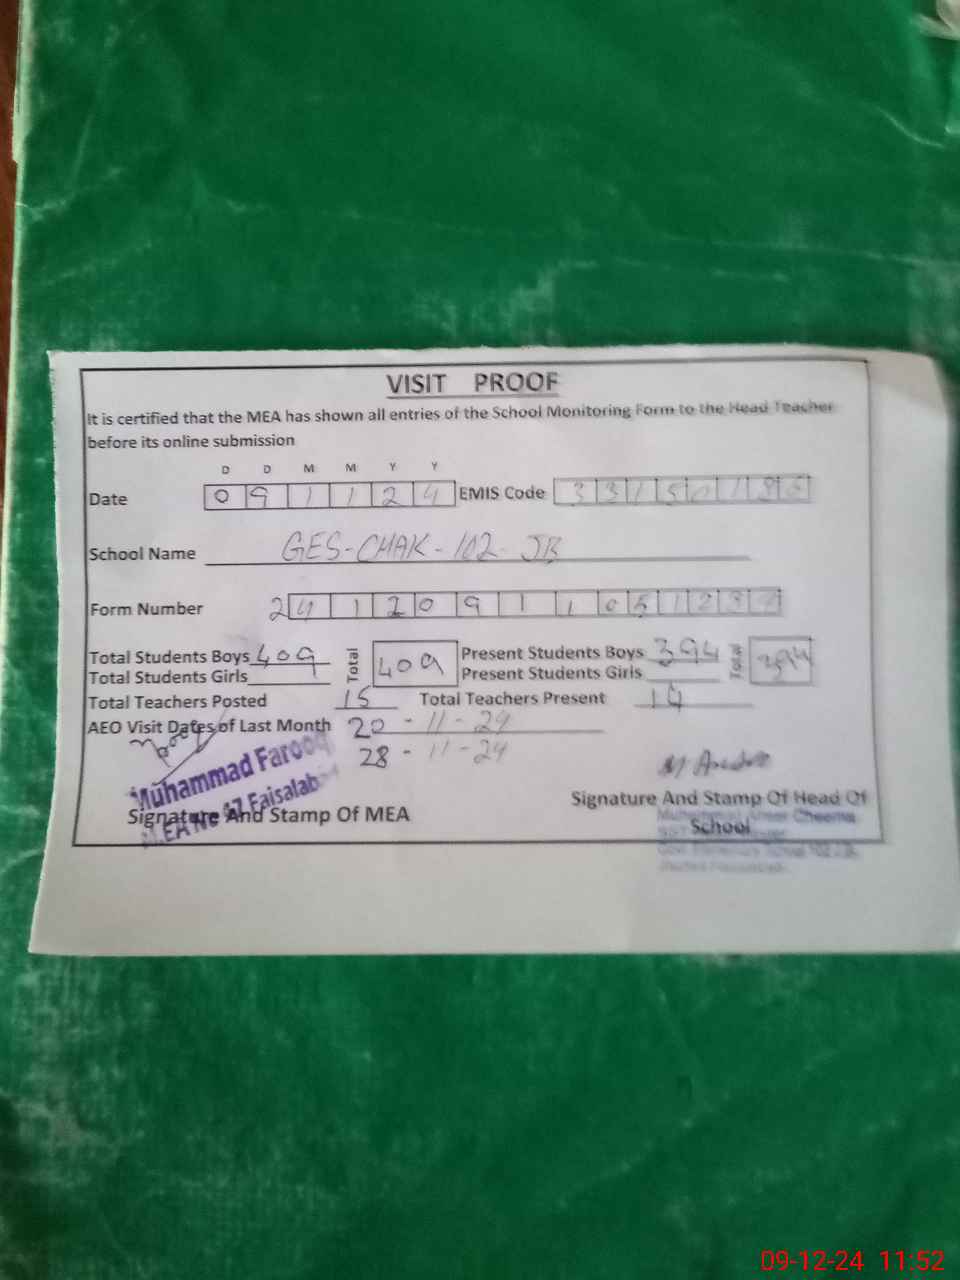 VISIT PROOF
It is certified that the MEA has shown all entries of the School Monitoring Form to the Head Teacher
before its online submission
D D M M Y Y
Date 0 9 1 1 2 4 EMIS Code 3 3 1 5 0 1 8 6
School Name GES-CHAK-102-JB
Form Number 2 4 1 2 0 9 1 1 0 5 1 2 3
Total Students Boys 409 Total 409 Present Students Boys 394 Total 394
Total Students Girls Present Students Girls
Total Teachers Posted 15 Total Teachers Present 14
AEO Visit Dates of Last Month 20-11-24
28-11-24
Muhammad Farooq
M.EA No 47 Faisalabad
Signature And Stamp Of MEA
Signature And Stamp Of Head Of
School
Muhammad Ameer Cheema
09-12-24 11:52